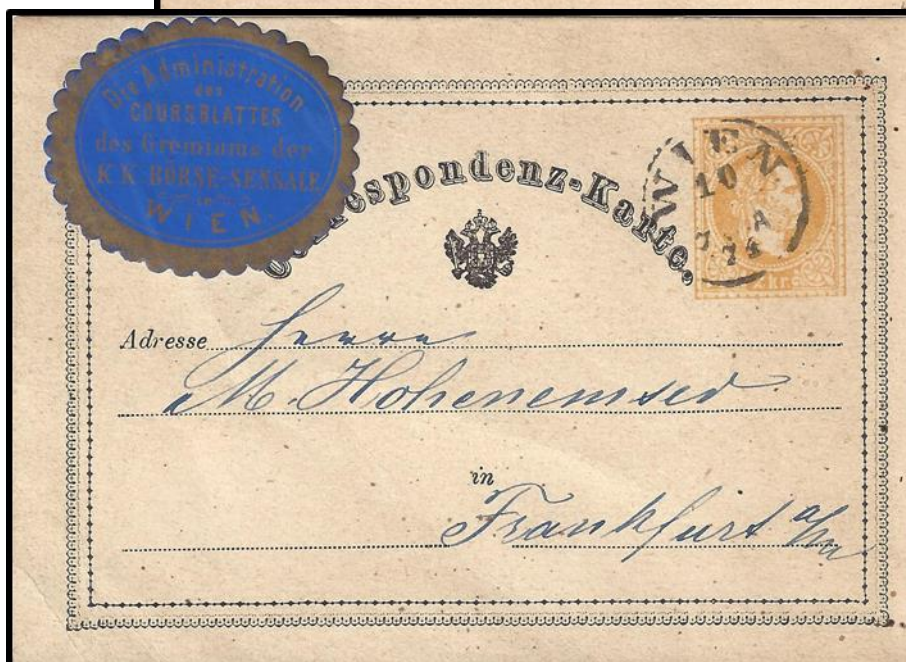 Die Administration
des
COURSBLATTES
des Gremiums der
K.K. BÖRSE-SENSALE
in
WIEN.
respondenz-Karte.
WIEN
10
A
74
2 Kr.
Adresse Herrn
M. Hohenemser
in
Frankfurt a/m